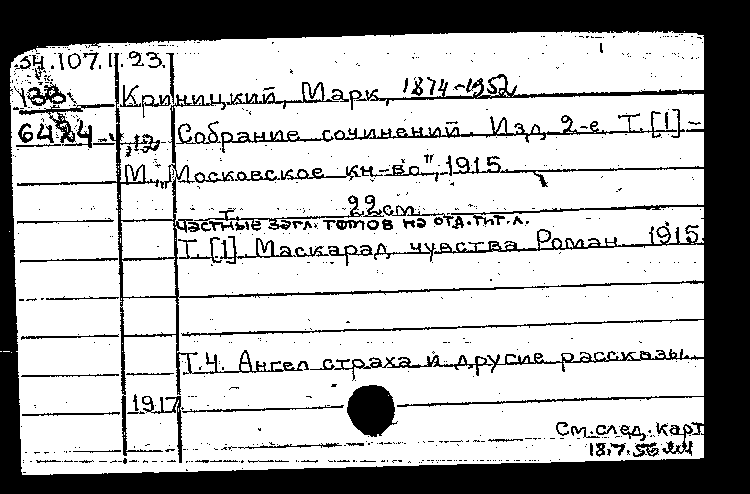 34.107.II.23.
138 Криницкий, Марк, 1874-1952
6424-4,12 Собрание сочинений. Изд. 2-е. Т. [1]-
М., „Московское кн-во", 1915.
Т. 22 см.
Частные загл. томов на отд. тит. л.
Т. [1]. Маскарад чувства Роман 1915.
Т.4. Ангел страха и другие рассказы.
1917.
См. след. карт
18.7.56